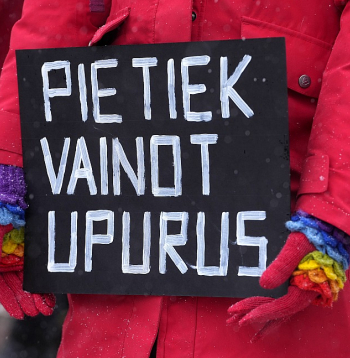 PIETIEK
VAINOT
UPURUS